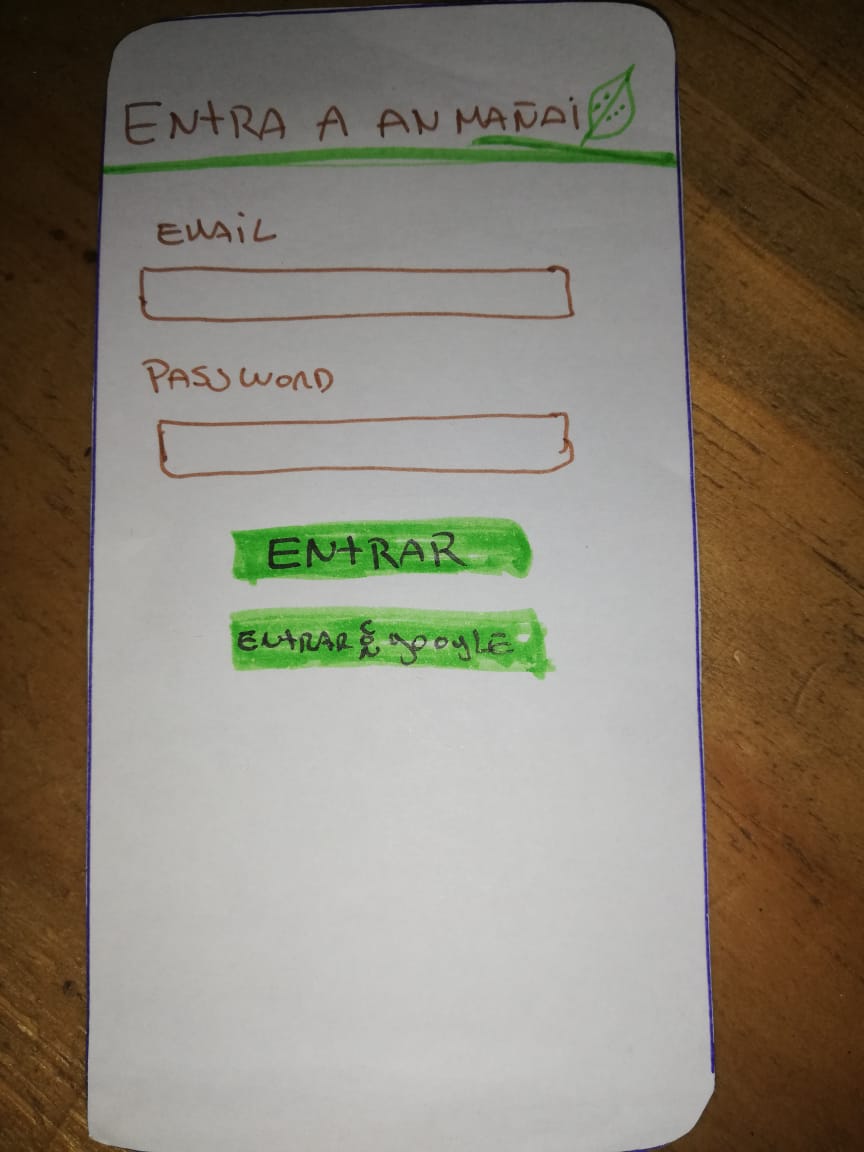 ENTRA A AN MAÑAI
EMAIL
PASSWORD
ENTRAR
ENTRAR CON google